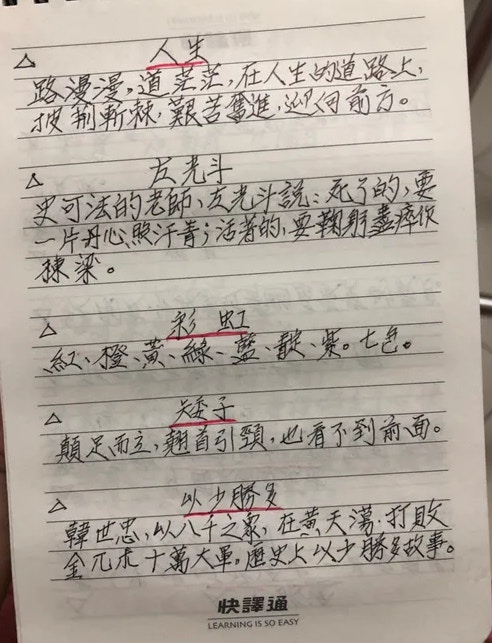 △ 人生
路漫漫，道茫茫，在人生的道路上，
披荆斬棘，艱苦奮進，迎向前方。
△ 左光斗
史可法的老師，左光斗說：死了的，要
一片丹心照汗青；活著的，要鞠躬盡瘁作
棟梁。
△ 彩虹
紅、橙、黃、綠、藍、靛、紫。七色。
△ 矮子
顛足而立，翹首引頸，也看不到前面。
△ 以少勝多
韓世忠，以八千之眾，在黃天蕩，打敗
金兀朮十萬大軍，歷史上以少勝多故事。
快譯通
LEARNING IS SO EASY